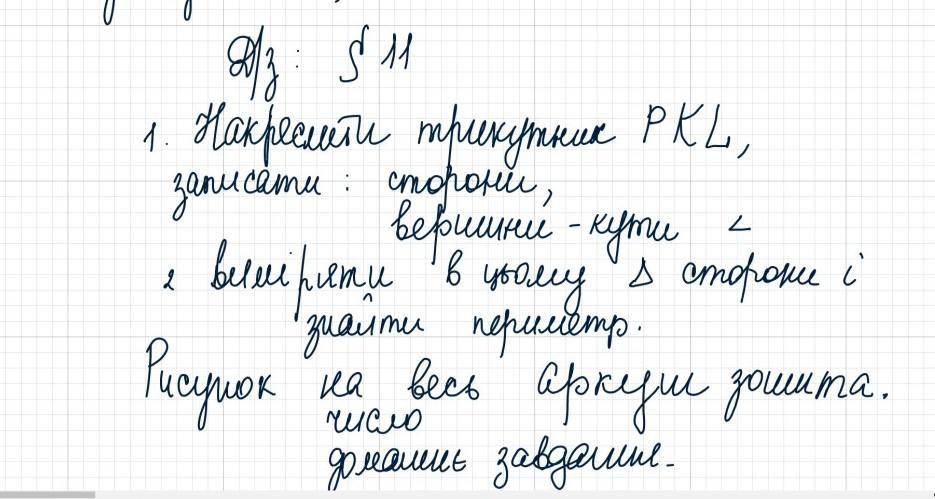 Д/з: § 11
1. Накреслити трикутник PKL,
записати: сторони,
вершини - кути ∠
2 виміряти в цьому Δ сторони і
знайти периметр.
Рисунок на весь аркуш зошита.
число
домашнє завдання.